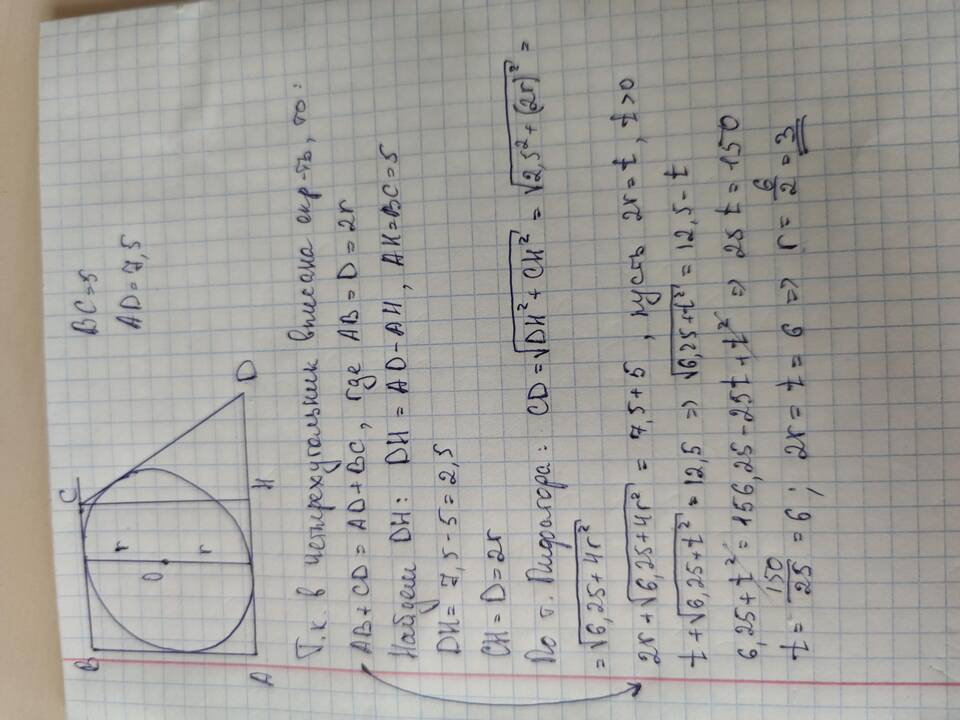 B
C
r
O
r
A
H
D
BC=5
AD=7,5
Т.к. в четырехугольник вписана окр-ть, то:
AB+CD=AD+BC, где AB=D=2r
Найдем DH: DH=AD-AH, AH=BC=5
DH=7,5-5=2,5
CH=D=2r
По т. Пифагора: CD=√DH²+CH² = √2,5²+(2r)² =
=√6,25+4r²
2r+√6,25+4r² = 7,5+5, пусть 2r=t, t>0
t+√6,25+t² = 12,5 => √6,25+t² = 12,5-t
6,25+t²=156,25-25t+t² => 25t=150
t=150/25=6; 2r=t=6 => r=6/2=3